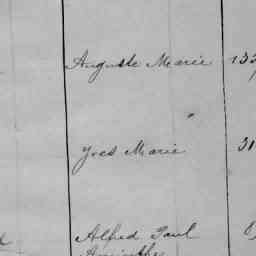 Auguste Marie 133
Yves Marie 31
Alfred Paul